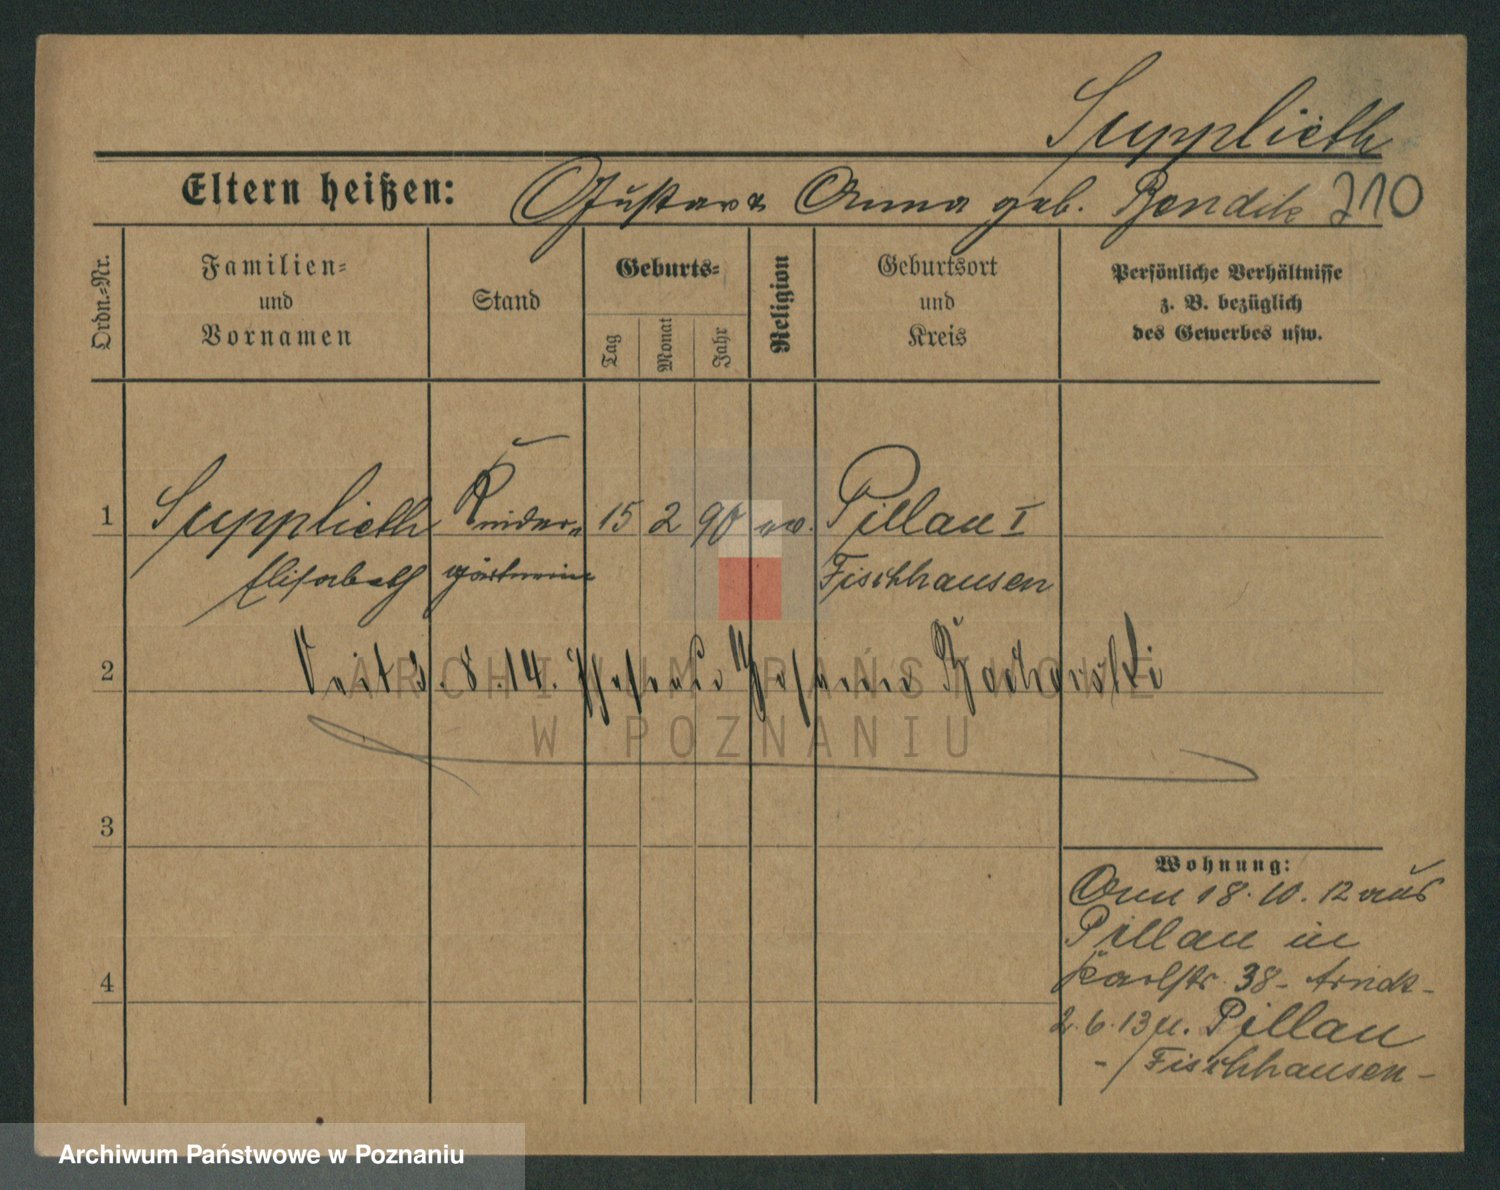 Supplieth
Eltern heißen: Gustav & Anna geb. Bendik 210
Ordn.=Nr.
Familien=
und
Vornamen
Stand
Geburts=
Tag
Monat
Jahr
Religion
Geburtsort
und
Kreis
Persönliche Verhältnisse
z. B. bezüglich
des Gewerbes usw.
1 Supplieth Kinder= 15 2 90 ev. Pillau I
Elisabeth gärtnerin Fischhausen
2 3. 8. 14.
ARCHIWUM PAŃSTWOWE
W POZNANIU
3
Wohnung:
18. 10. 12 aus
Pillau in
Karlstr. 38 - Arndt -
4
2. 6. 13 n. Pillau
- / Fischhausen -
Archiwum Państwowe w Poznaniu